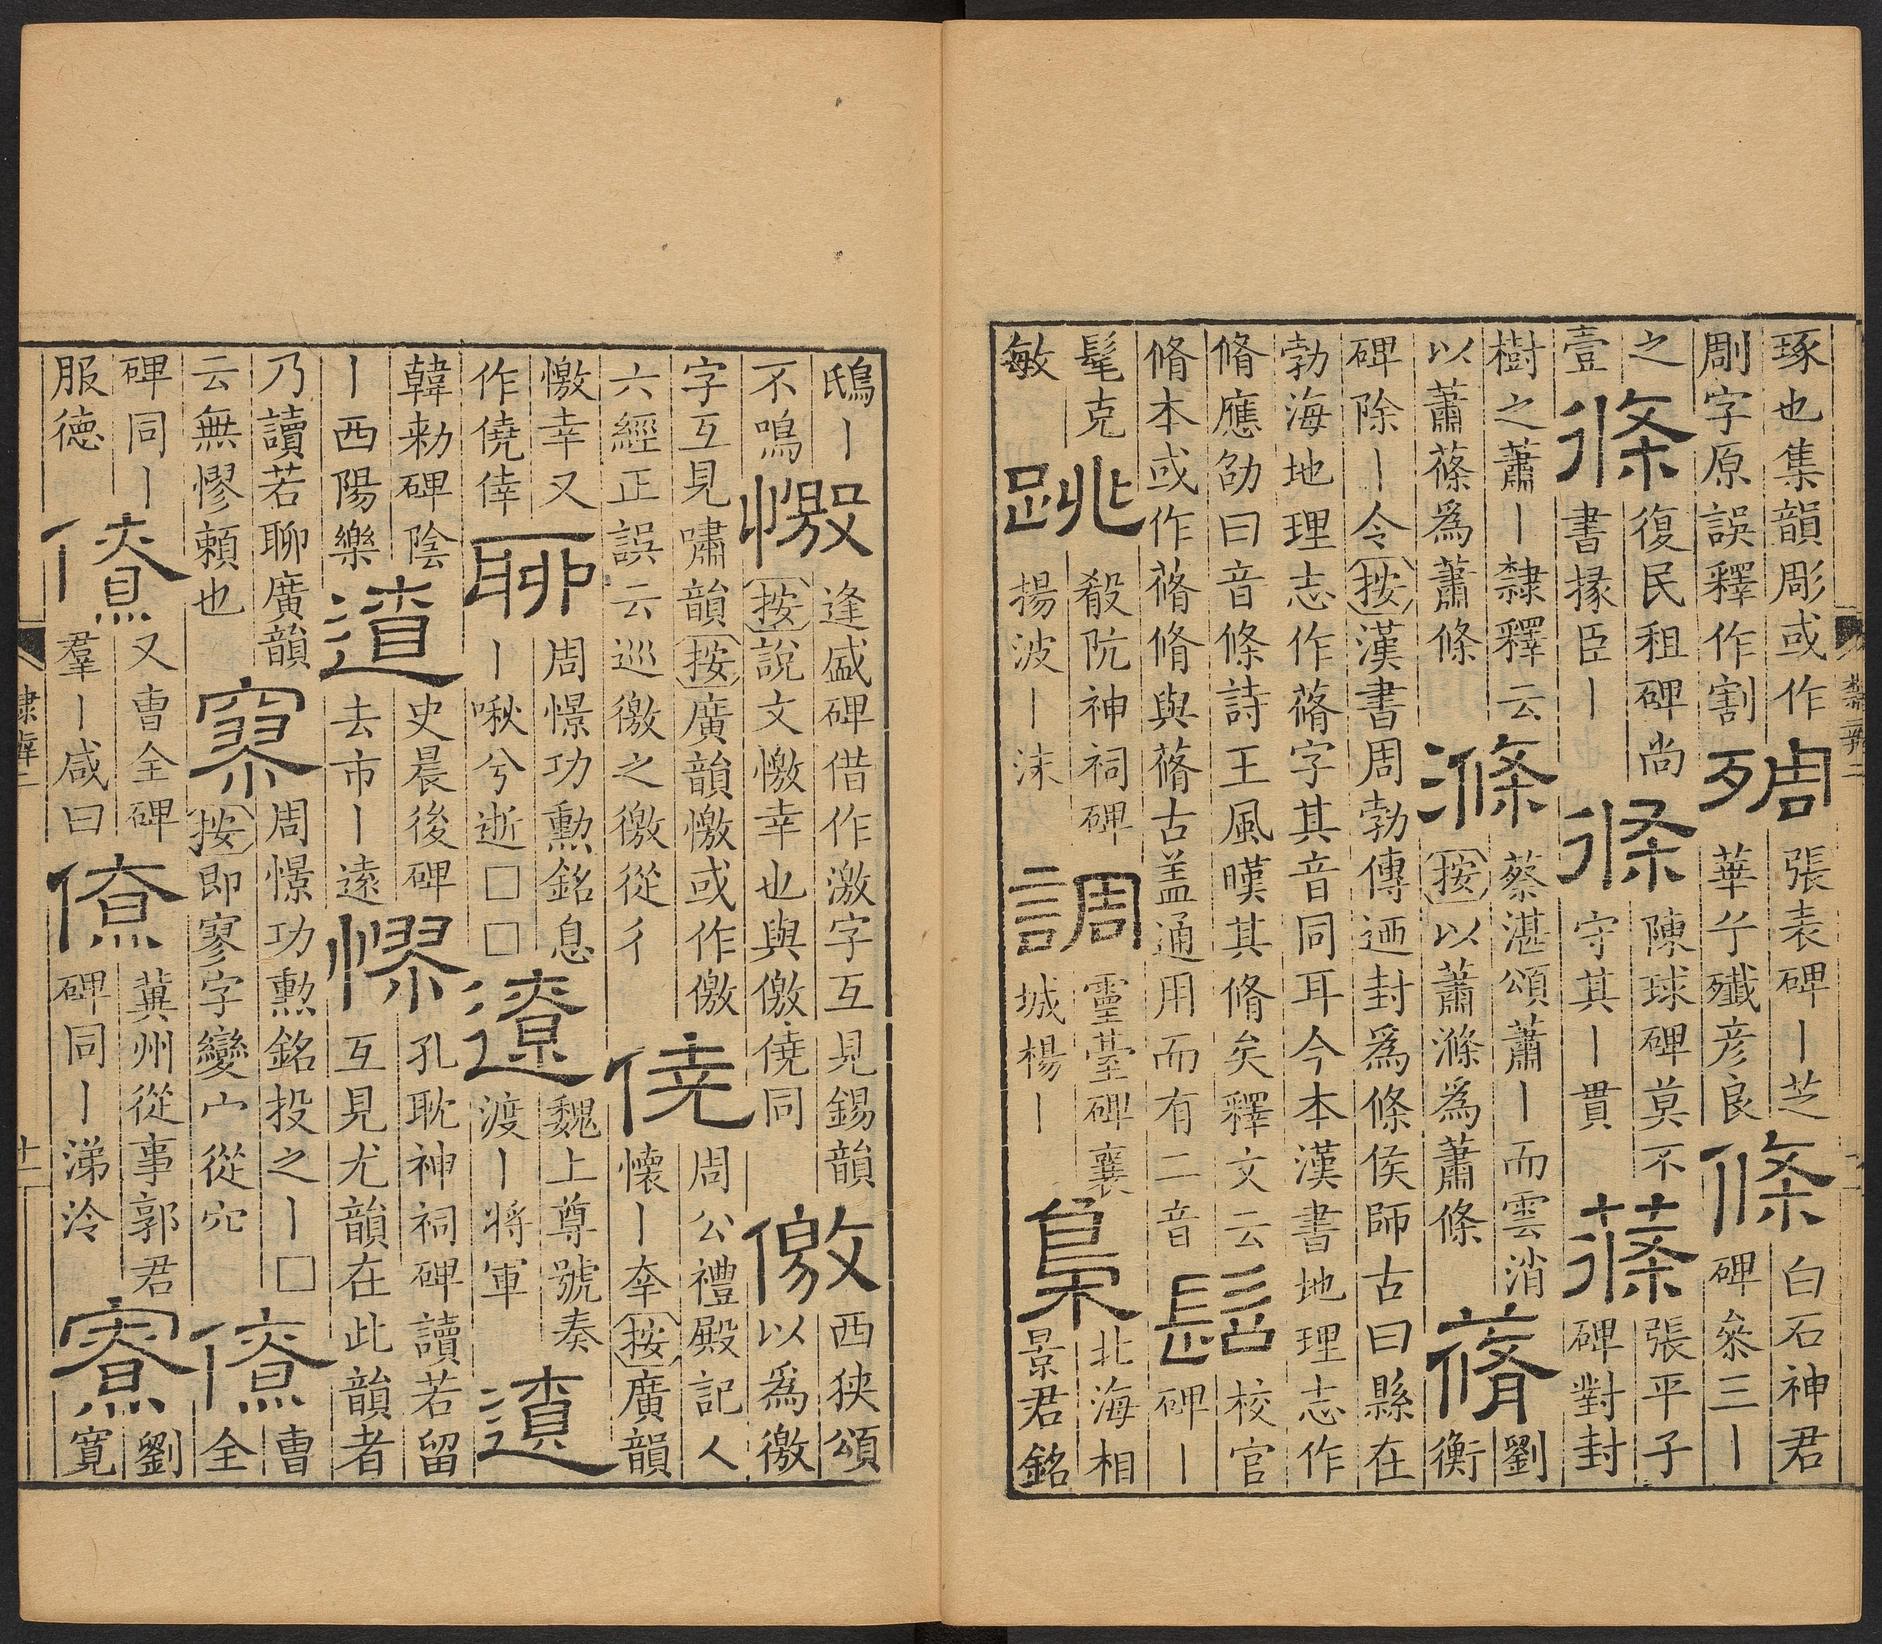 琢也集韻彫或作剧字原誤釋作割殦張表碑丨芝華乍殲彦良條白石神君碑叅三丨
之壹條復民租碑尚書掾臣丨條陳球碑莫不守其丨貫蓧張平子碑對封
樹之蕭丨隸釋云以蕭蓧爲蕭條滌蔡湛頌蕭丨而雲消按以蕭滌爲蕭條蓨劉衡
碑除丨令按漢書周勃傳迺封爲條侯師古曰縣在勃海地理志作蓨字其音同耳今本漢書地理志作
脩應劭曰音條詩王風嘆其脩矣釋文云脩本或作蓨脩與蓨古盖通用而有二音髫校官碑丨
髦克敏跳殽阬神祠碑揚波丨沫調靈臺碑襄城楊丨梟北海相景君銘
鴟丨不鳴憿逢盛碑借作激字互見錫韻按說文憿幸也與儌僥同儌西狹頌以爲徼
字互見嘯韻按廣韻憿或作儌六經正誤云巡徼之徼從彳僥周公禮殿記人懷丨㚔按廣韻
憿幸又作僥倖聊周憬功勲銘息丨啾兮逝□□遼魏上尊號奏渡丨將軍遼
韓勑碑陰丨西陽樂遼史晨後碑去市丨遠憀孔耽神祠碑讀若留互見尤韻在此韻者
乃讀若聊廣韻云無憀賴也寥周憬功勲銘投之丨□按即寥字變宀從穴僚曹全
碑同丨服德僚又曹全碑羣丨咸曰僚冀州從事郭君碑同丨涕泠寮劉寬
隸辨二
十一